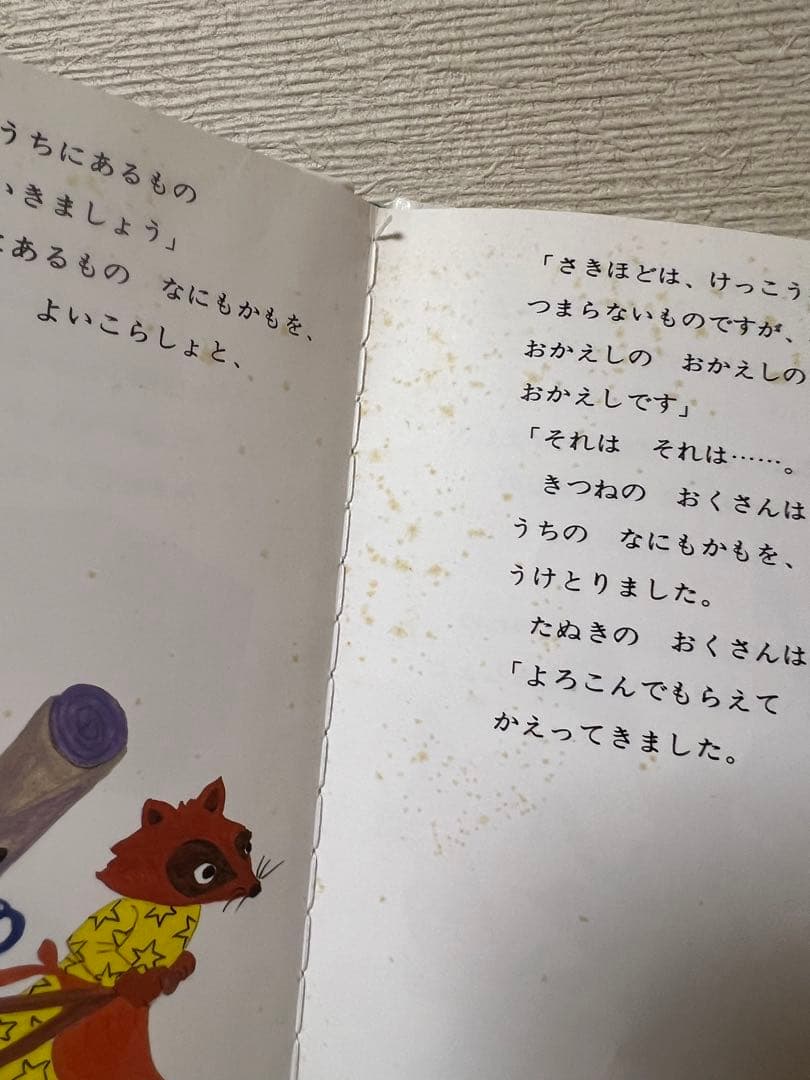 うちにあるもの
いきましょう」
にあるもの　なにもかもを、
よいこらしょと、
「さきほどは、けっこう
つまらないものですが、
おかえしの　おかえしの
おかえしです」
「それは　それは……。
きつねの　おくさんは
うちの　なにもかもを、
うけとりました。
たぬきの　おくさんは
「よろこんでもらえて
かえってきました。